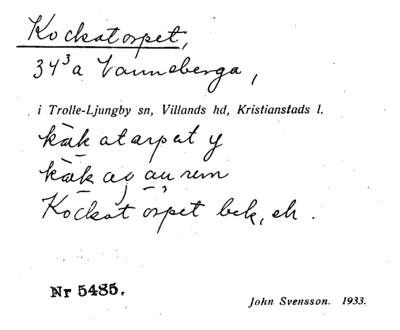 Kockatorpet,
34³a Vanneberga,
i Trolle-Ljungby sn, Villands hd, Kristianstads l.
kåkatarpet y
Kockatorpet bek, eh.
Nr 5485.
John Svensson. 1933.